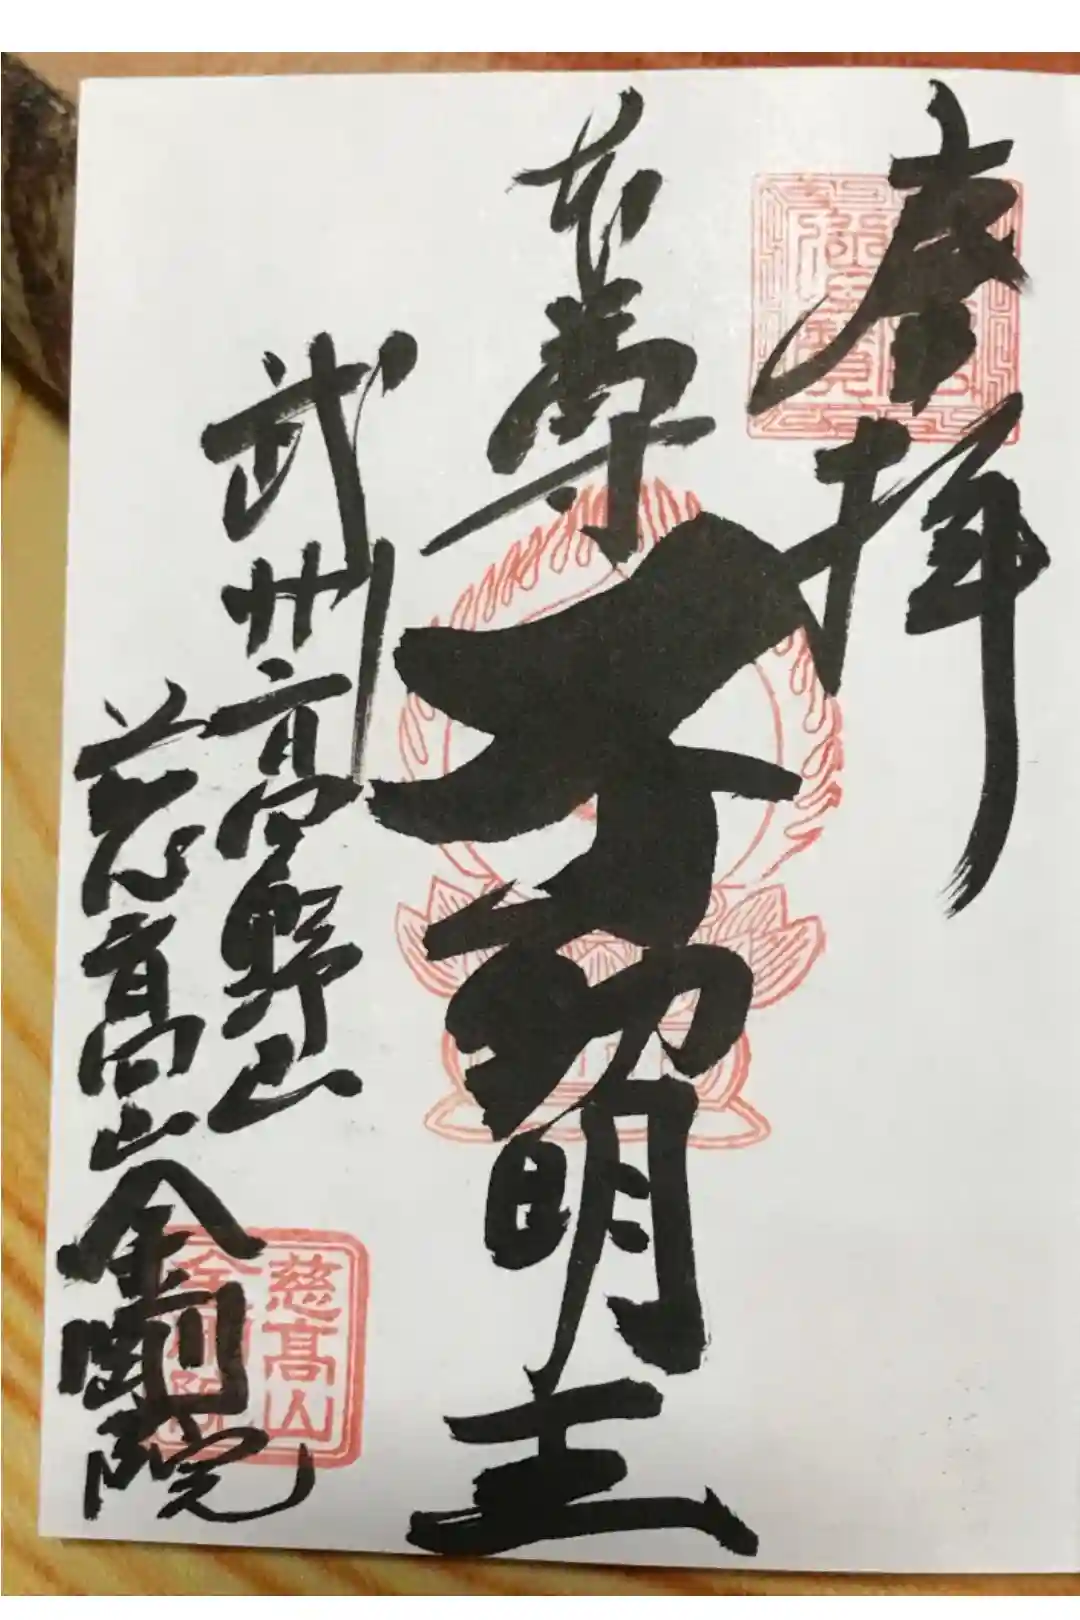 奉拝
本尊
不動明王
武州高野山
慈高山金剛院
慈高山
金剛院